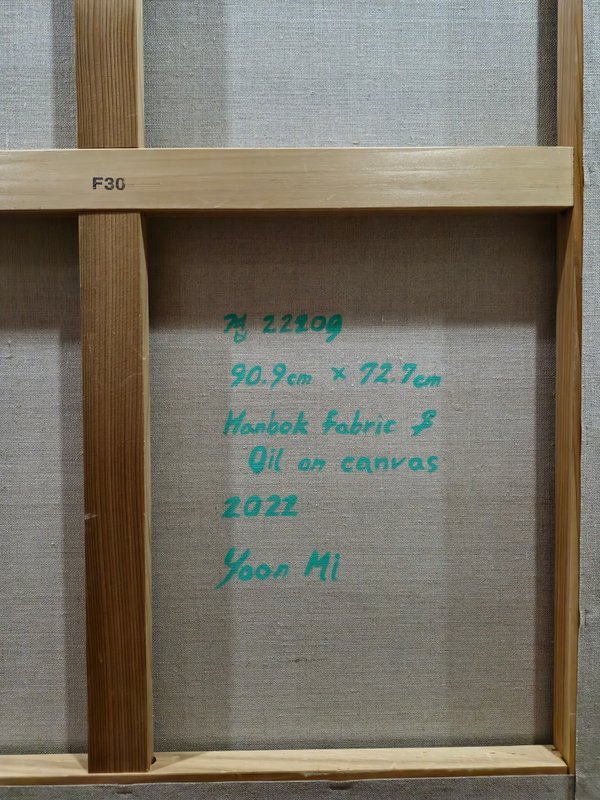 F30
겹 2210g
90.9cm × 72.7cm
Hanbok Fabric &
Oil on canvas
2022
Yoon Mi